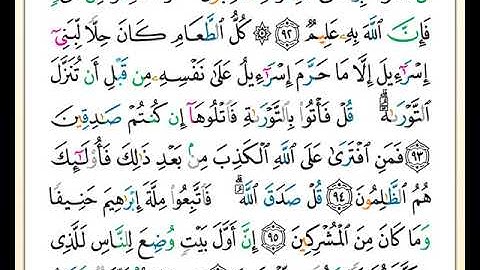 فَإِنَّ ٱللَّهَ بِهِۦ عَلِيمٌ ﴿٩٢﴾ ۞ كُلُّ ٱلطَّعَامِ كَانَ حِلًّا لِّبَنِىٓ
إِسْرَٰٓءِيلَ إِلَّا مَا حَرَّمَ إِسْرَٰٓءِيلُ عَلَىٰ نَفْسِهِۦ مِن قَبْلِ أَن تُنَزَّلَ
ٱلتَّوْرَىٰةُ ۗ قُلْ فَأْتُوا۟ بِٱلتَّوْرَىٰةِ فَٱتْلُوهَآ إِن كُنتُمْ صَـٰدِقِينَ
﴿٩٣﴾ فَمَنِ ٱفْتَرَىٰ عَلَى ٱللَّهِ ٱلْكَذِبَ مِنۢ بَعْدِ ذَٰلِكَ فَأُو۟لَـٰٓئِكَ
هُمُ ٱلظَّـٰلِمُونَ ﴿٩٤﴾ قُلْ صَدَقَ ٱللَّهُ ۗ فَٱتَّبِعُوا۟ مِلَّةَ إِبْرَٰهِيمَ حَنِيفًا
وَمَا كَانَ مِنَ ٱلْمُشْرِكِينَ ﴿٩٥﴾ إِنَّ أَوَّلَ بَيْتٍ وُضِعَ لِلنَّاسِ لَلَّذِى